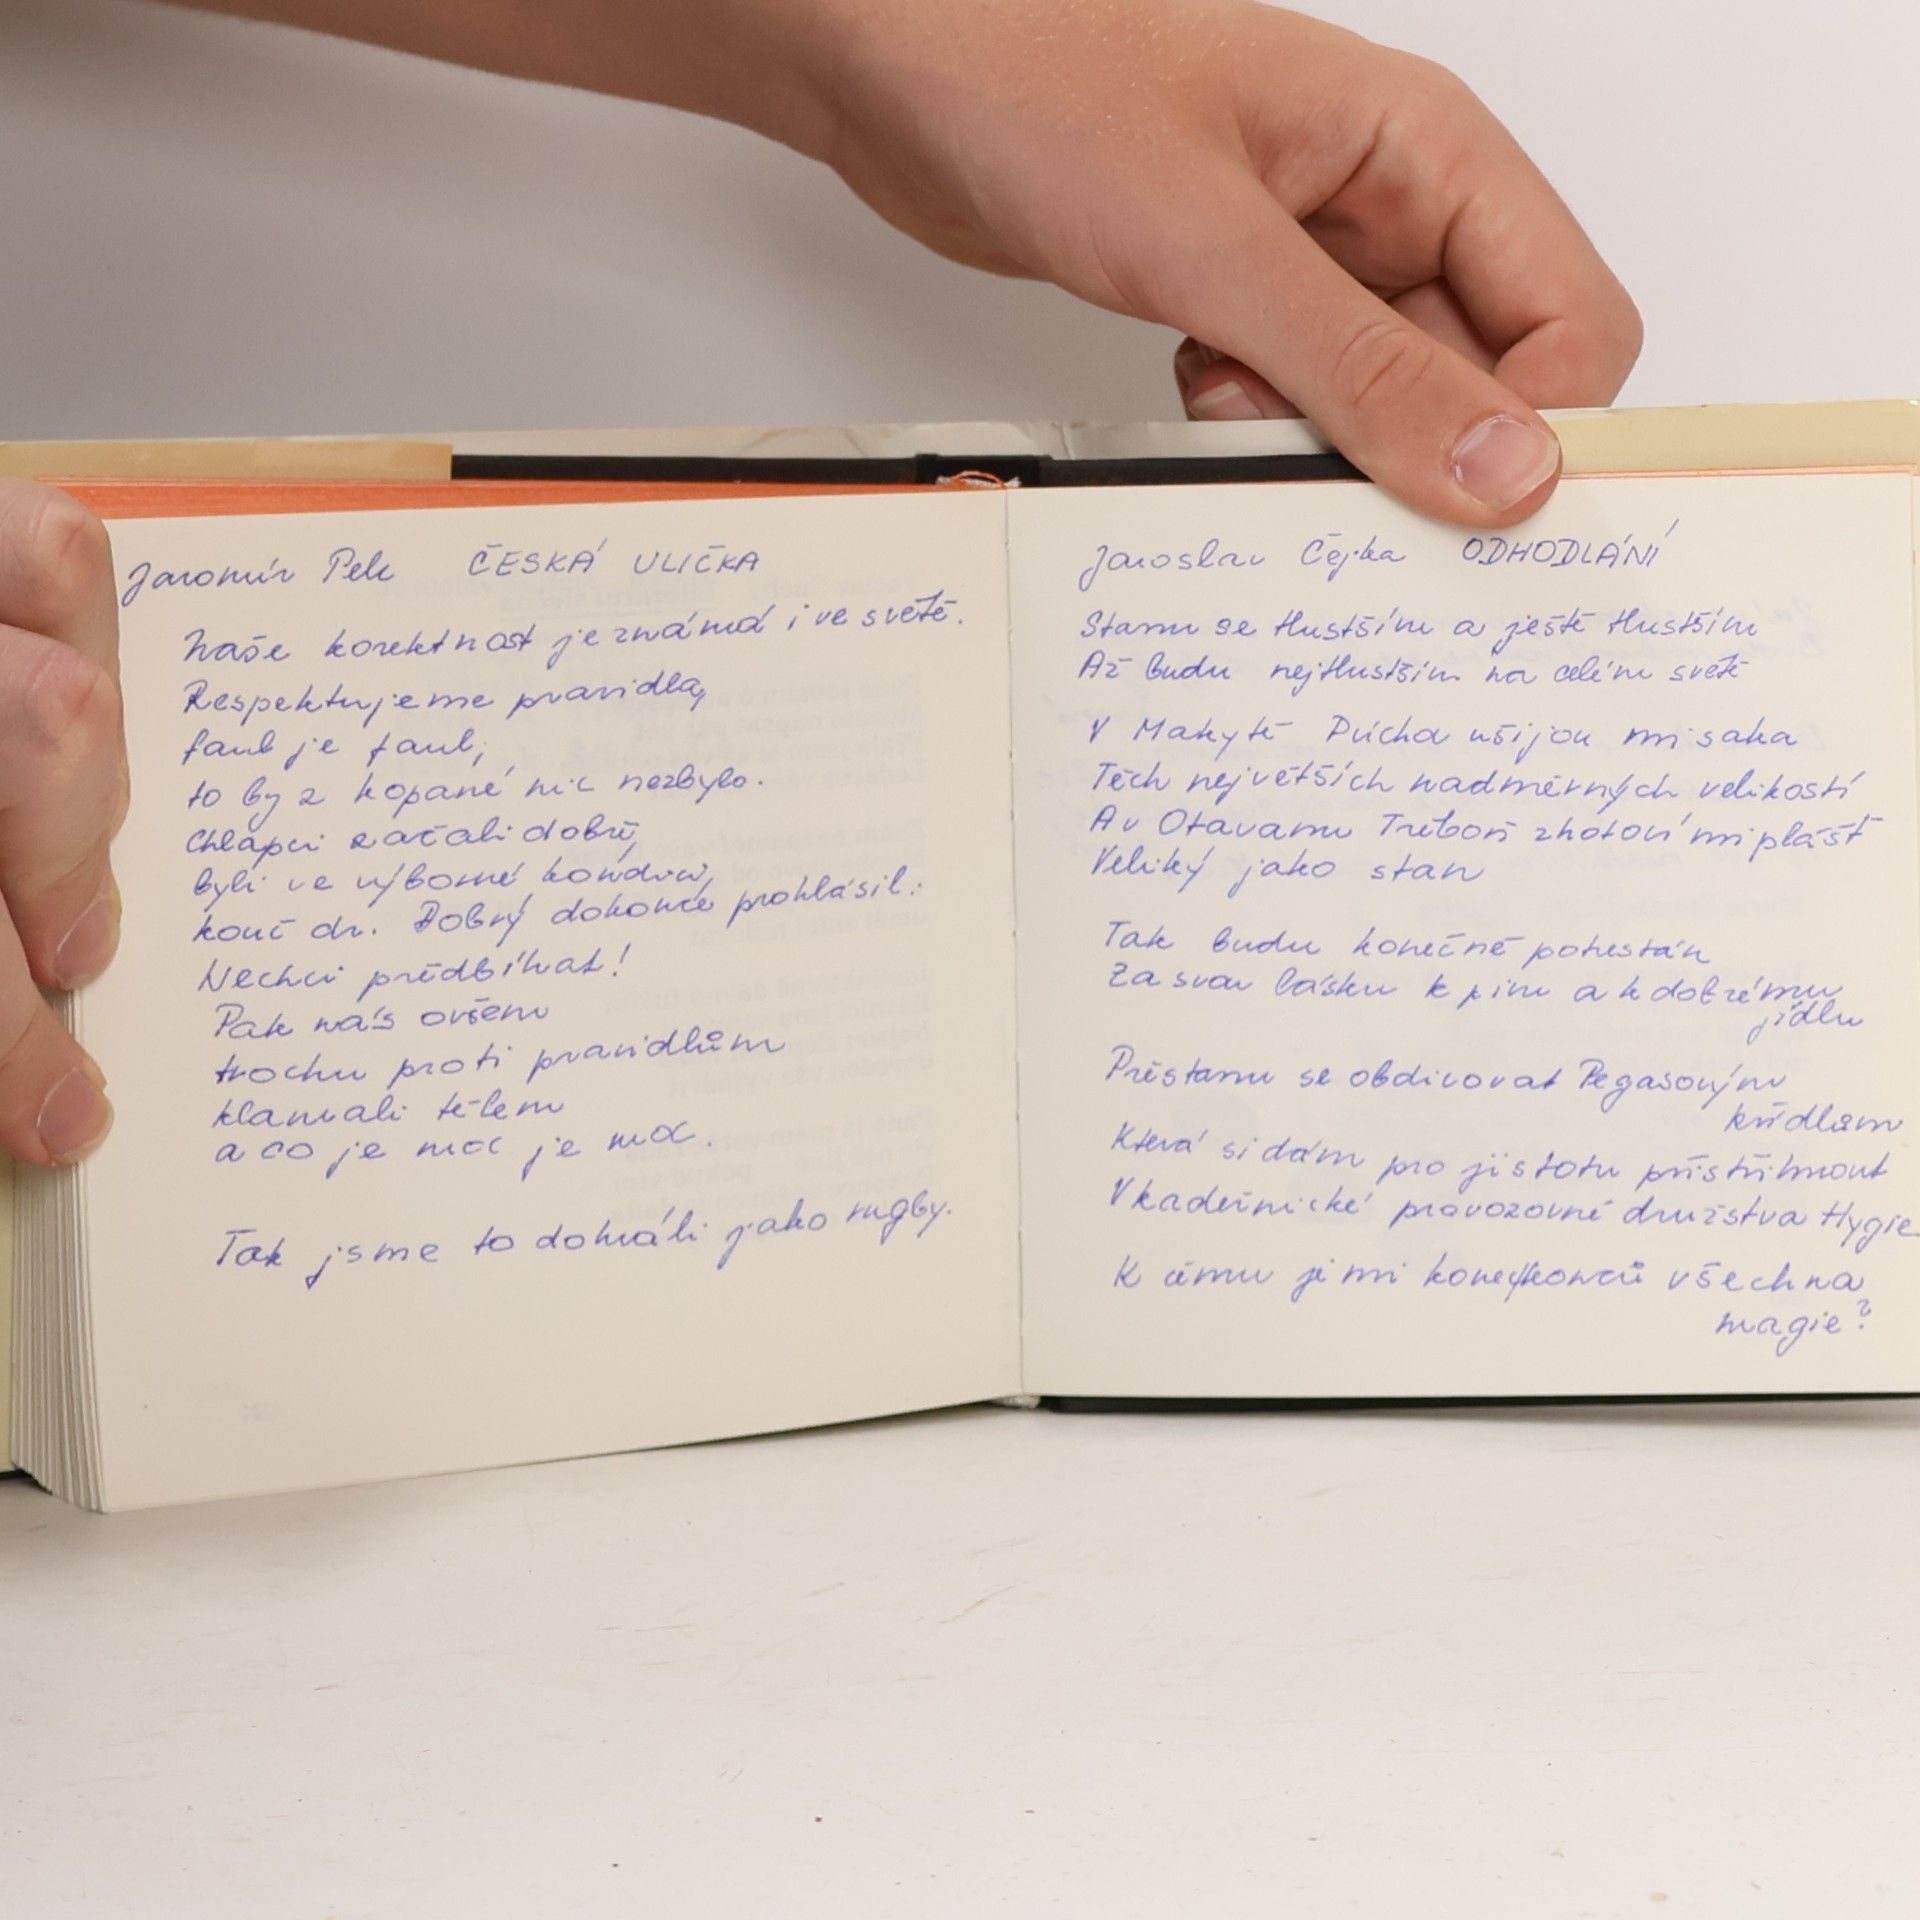 Jaromír Pelc ČESKÁ ULIČKA
Naše korektnost je známá i ve světě.
Respektujeme pravidla,
faul je faul,
to by z kopané nic nezbylo.
Chlapci začali dobře,
byli ve výborné kondici,
kouč dr. Dobrý dokonce prohlásil:
Nechci předbíhat!
Pak nás ovšem
trochu proti pravidlům
klamali tělem
a co je moc je moc.
Tak jsme to dohráli jako rugby.
Jaroslav Čejka ODHODLÁNÍ
Stanu se tlustším a ještě tlustším
Až budu nejtlustším na celém světě
V Makytě Púchov ušijou mi saka
Těch největších nadměrných velikostí
A v Otavanu Třeboň zhotoví mi plášť
Veliký jako stan
Tak budu konečně potrestán
Za svou lásku k pivu a k dobrému
jídlu
Přestanu se obdivovat Pegasovým
křídlům
Která si dám pro jistotu přistřihnout
V kadeřnické provozovně družstva Hygie
K čemu je mi koneckonců všechna
magie?